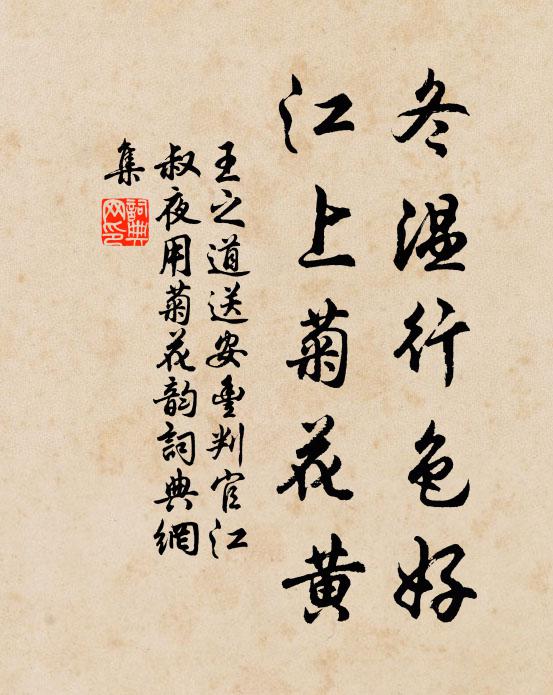 冬温行色好
江上菊花黄
王之道送安豐判官江
叔夜用菊花韵詞典網
集
詞典
网印